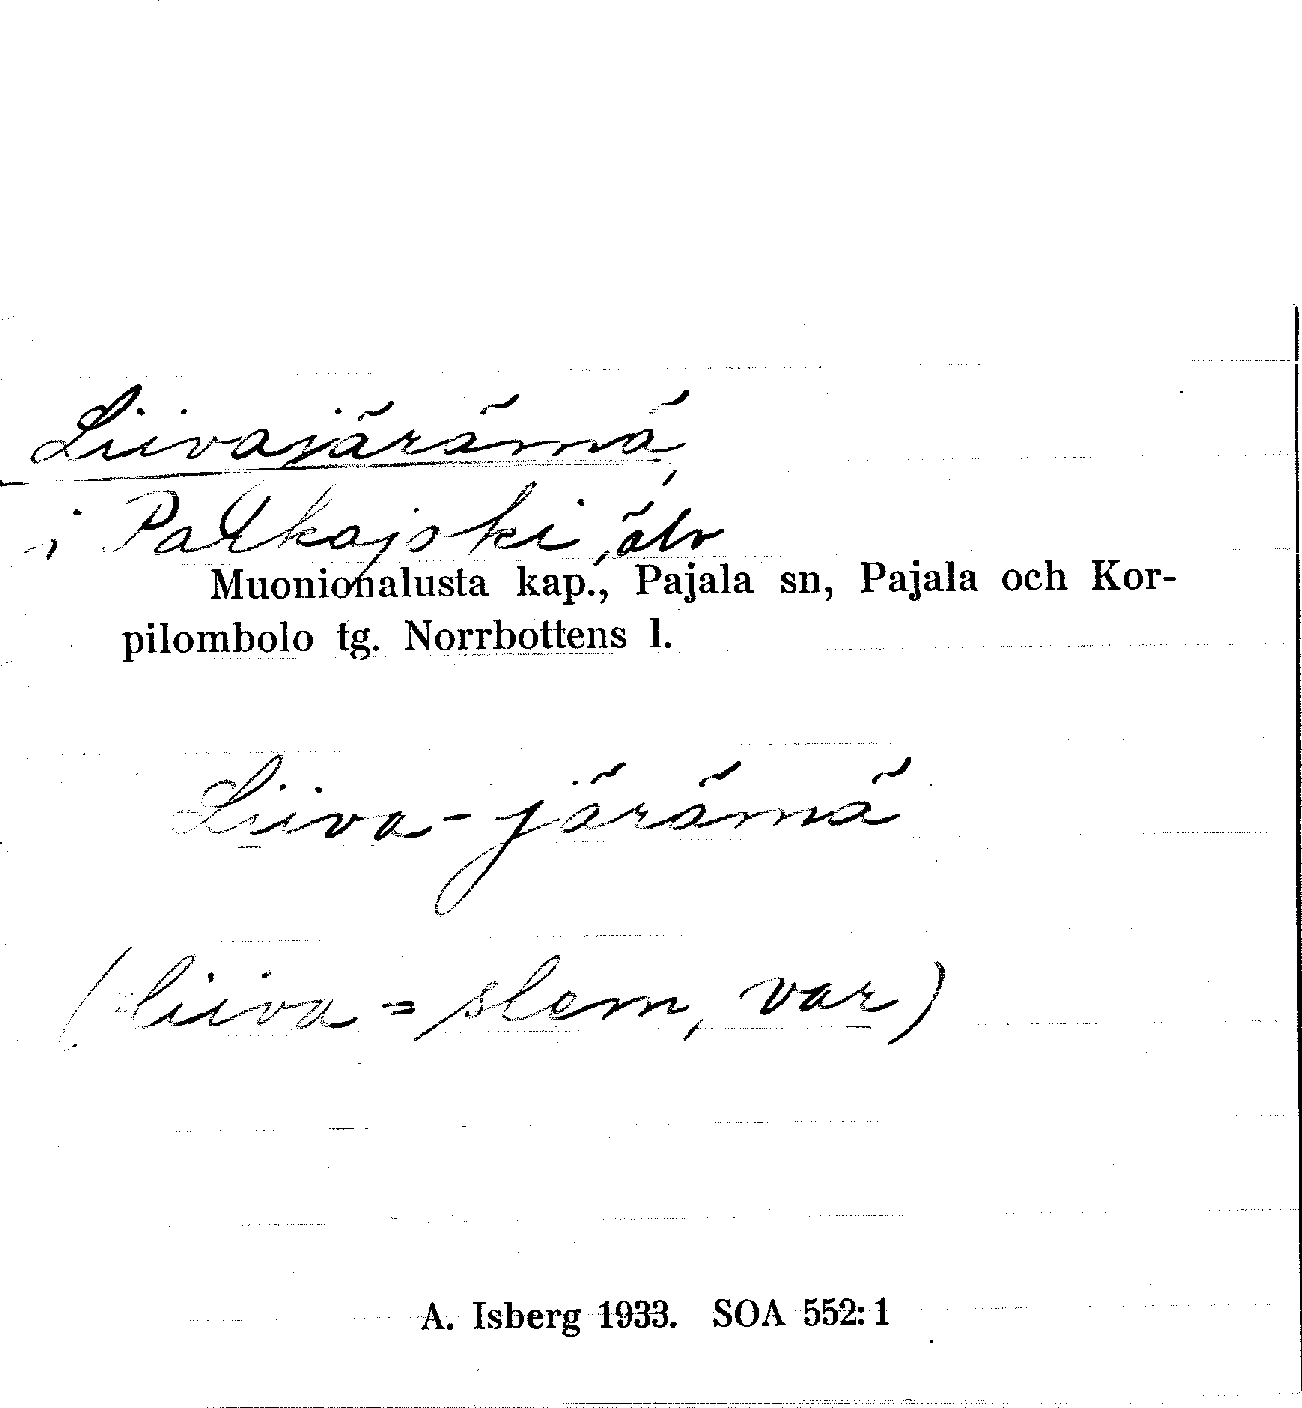 Liivajärämä,
i Palkajoki, älv
Muonionalusta kap., Pajala sn, Pajala och Kor-
pilombolo tg. Norrbottens l.
Liiva-järämä
(liiva = slem, var)
A. Isberg 1933. SOA 552:1